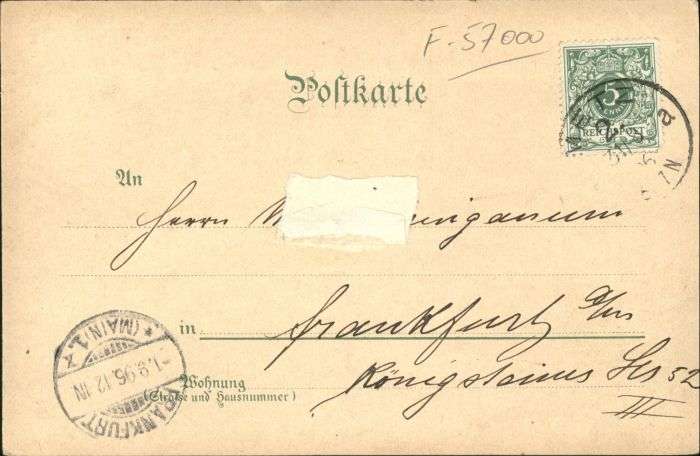 F-57000
5
REICHSPOST
Postkarte
METZ
An
Herrn
in Frankfurt a/M
Königsteiner Str 52
III
Wohnung
(Straße und Hausnummer)
FRANKFURT
* (MAIN) 1. *
1.9.96.12-1N